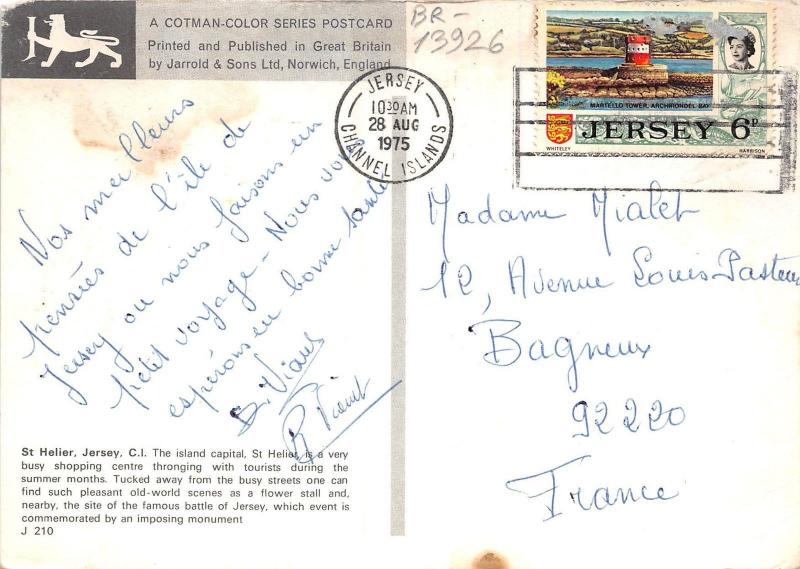 A COTMAN-COLOR SERIES POSTCARD
Printed and Published in Great Britain
by Jarrold & Sons Ltd, Norwich, England
BR-
13926
JERSEY
10 30 AM
28 AUG
1975
CHANNEL ISLANDS
MARTELLO TOWER, ARCHIRONDEL BAY
JERSEY 6P
WHITELEY HARRISON
Nos meilleurs
pensées de l'île de
Jersey ou nous faisons un
petit voyage - Nous vous
espérons en bonne santé
Madame Mialet
12, Avenue Louis Pasteur
Bagneux
92220
France
St Helier, Jersey, C.I. The island capital, St Helier, is a very
busy shopping centre thronging with tourists during the
summer months. Tucked away from the busy streets one can
find such pleasant old-world scenes as a flower stall and,
nearby, the site of the famous battle of Jersey, which event is
commemorated by an imposing monument
J 210